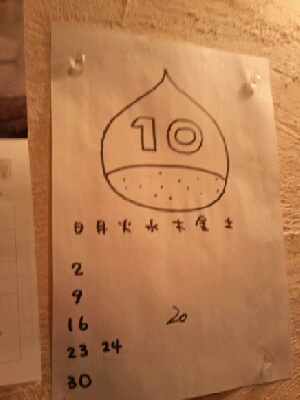 10
日 月 火 水 木 金 土
2
9
16 20
23 24
30